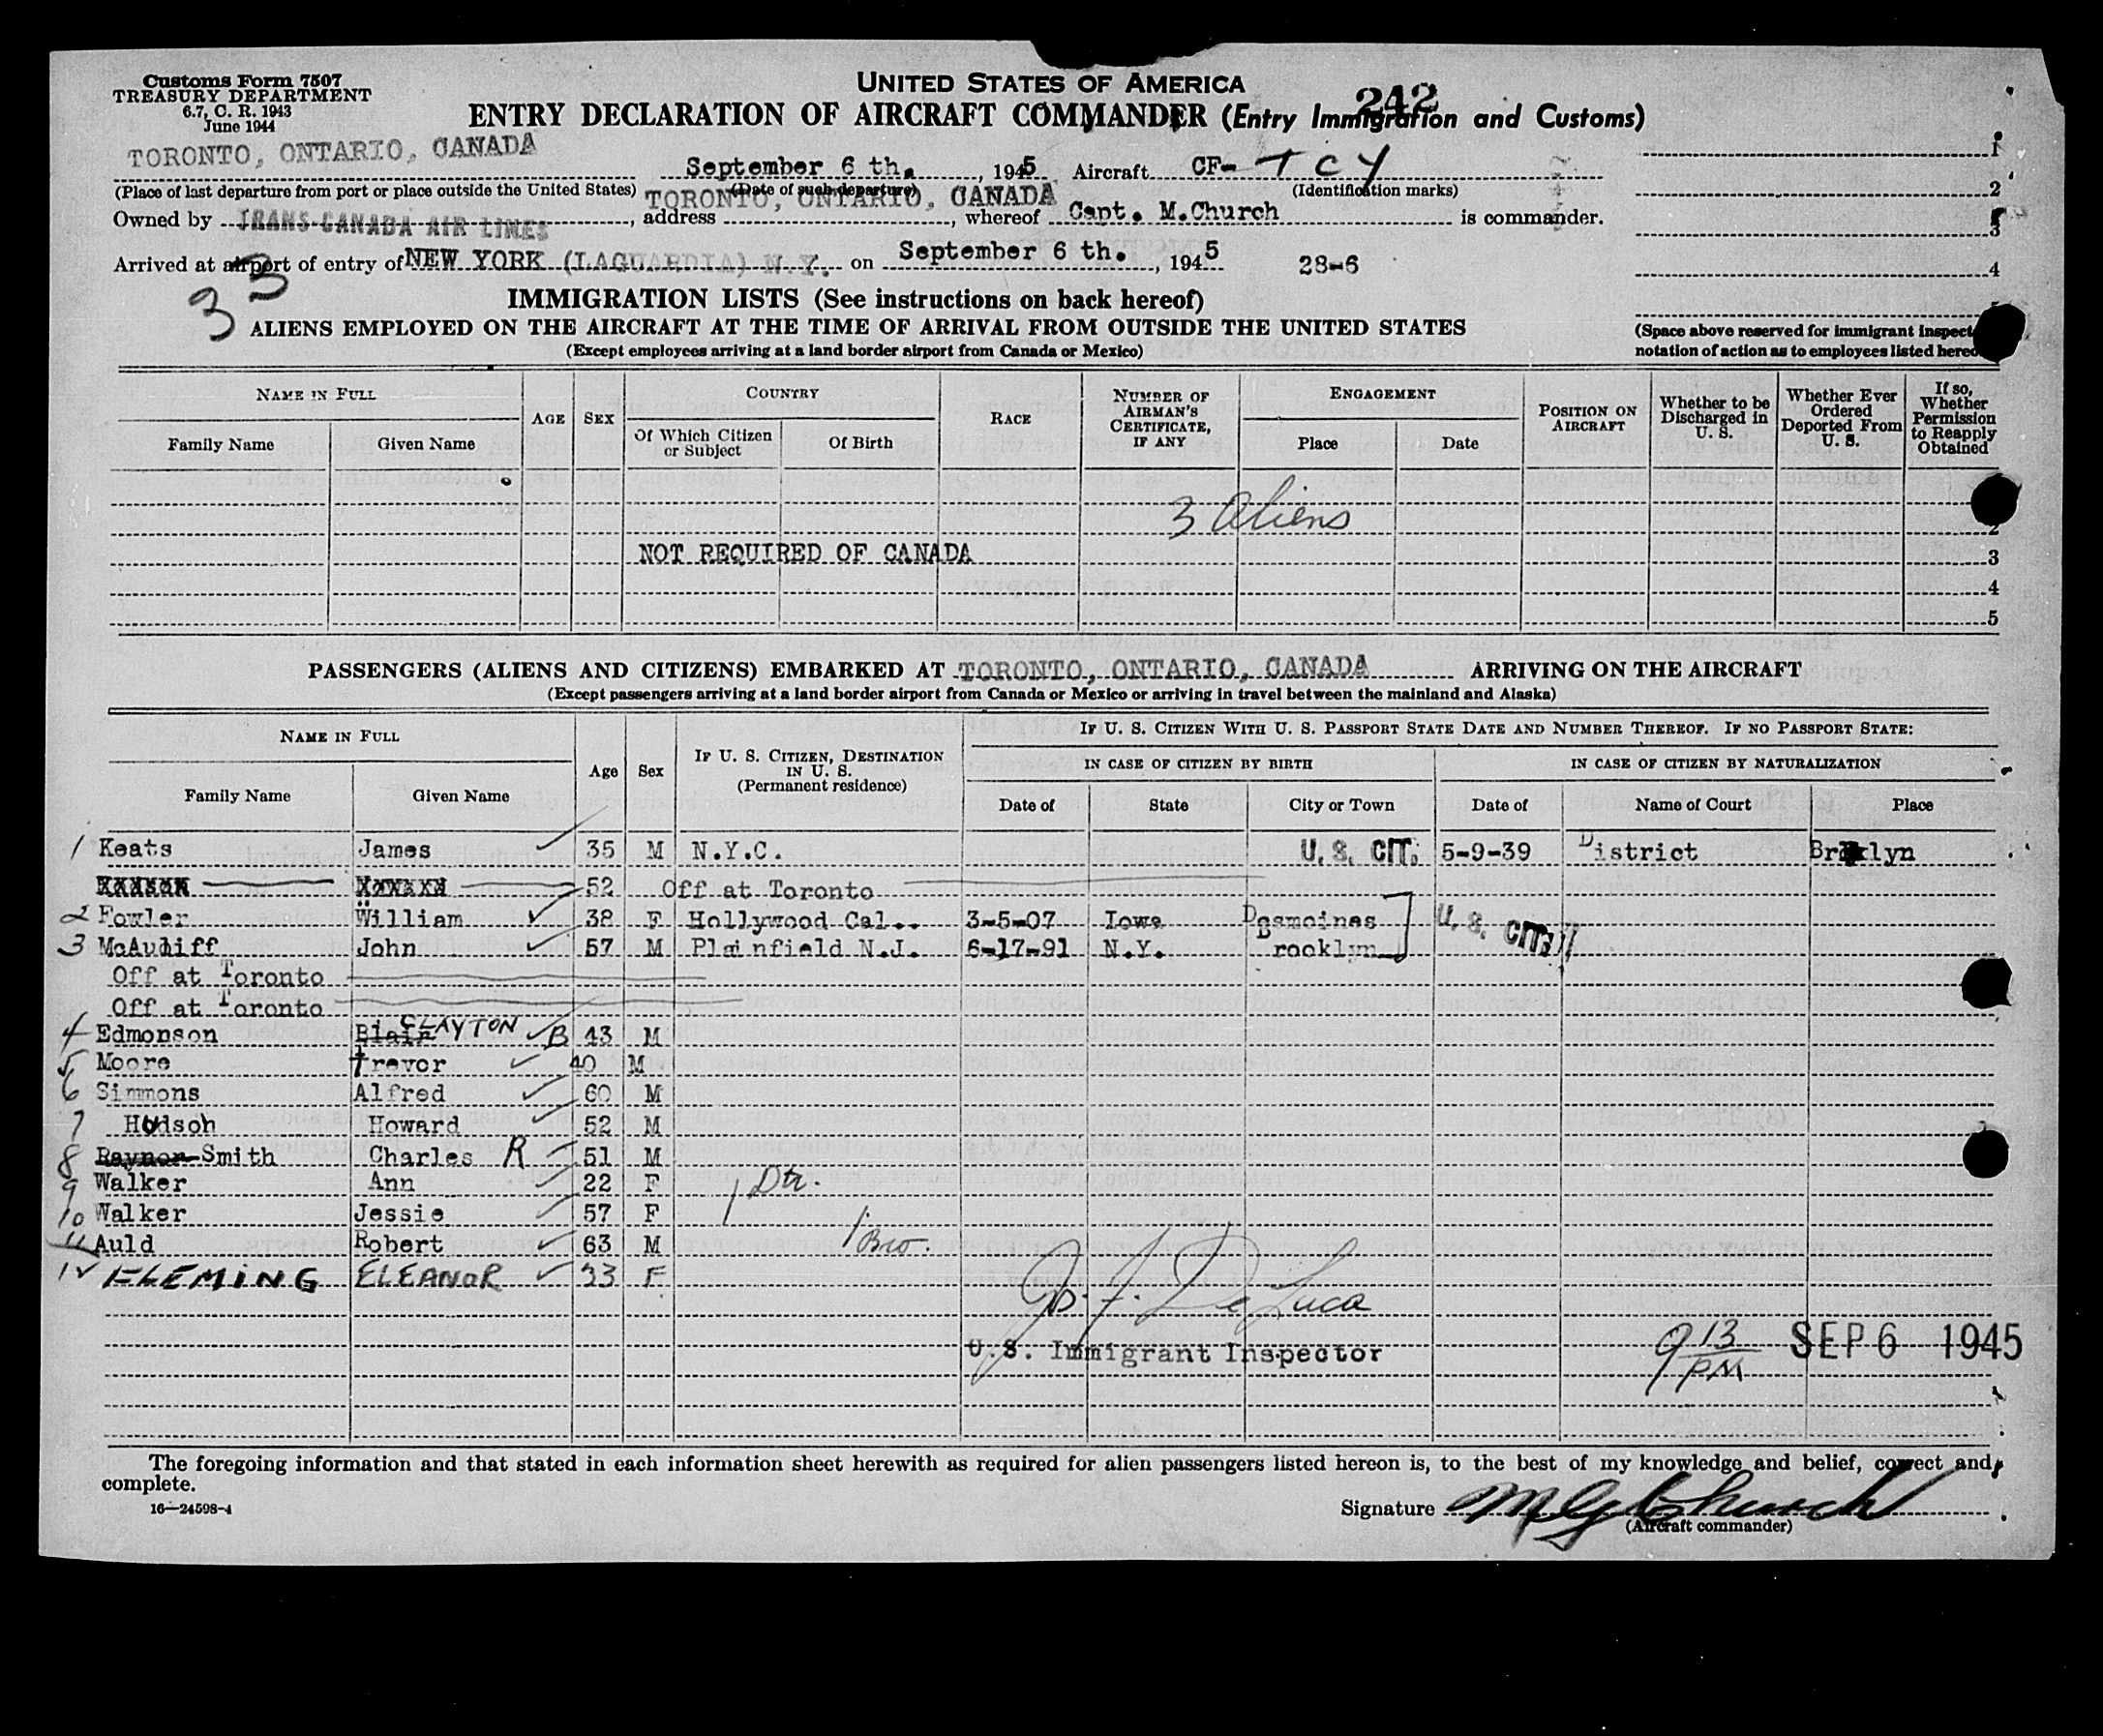 Customs Form 7507
TREASURY DEPARTMENT
6.7, C. R. 1943
June 1944
UNITED STATES OF AMERICA
242
ENTRY DECLARATION OF AIRCRAFT COMMANDER (Entry Immigration and Customs)
TORONTO, ONTARIO, CANADA September 6 th. , 1945 Aircraft CF- TCY
(Place of last departure from port or place outside the United States) (Date of such departure) (Identification marks)
Owned by TRANS-CANADA AIR LINES , address TORONTO, ONTARIO, CANADA , whereof Capt. M.Church is commander.
Arrived at airport of entry of NEW YORK (LAGUARDIA) N.Y. on September 6 th. , 1945 28-6
1
2
3
4
33
IMMIGRATION LISTS (See instructions on back hereof)
ALIENS EMPLOYED ON THE AIRCRAFT AT THE TIME OF ARRIVAL FROM OUTSIDE THE UNITED STATES
(Except employees arriving at a land border airport from Canada or Mexico)
(Space above reserved for immigrant inspect
notation of action as to employees listed hereo
NAME IN FULL AGE SEX COUNTRY RACE NUMBER OF AIRMAN'S CERTIFICATE, IF ANY ENGAGEMENT POSITION ON AIRCRAFT Whether to be Discharged in U. S. Whether Ever Ordered Deported From U. S. If so, Whether Permission to Reapply Obtained
Family Name Given Name Of Which Citizen or Subject Of Birth Place Date
3 Aliens
2
NOT REQUIRED OF CANADA 3
4
5
PASSENGERS (ALIENS AND CITIZENS) EMBARKED AT TORONTO, ONTARIO, CANADA ARRIVING ON THE AIRCRAFT
(Except passengers arriving at a land border airport from Canada or Mexico or arriving in travel between the mainland and Alaska)
NAME IN FULL Age Sex IF U. S. CITIZEN, DESTINATION IN U. S. (Permanent residence) IF U. S. CITIZEN WITH U. S. PASSPORT STATE DATE AND NUMBER THEREOF. IF NO PASSPORT STATE:
IN CASE OF CITIZEN BY BIRTH IN CASE OF CITIZEN BY NATURALIZATION
Family Name Given Name Date of State City or Town Date of Name of Court Place
1 Keats James 35 M N.Y.C. U. S. CIT. 5-9-39 District Brooklyn
52 Off at Toronto
2 Fowler William 38 F Hollywood Cal.. 3-5-07 Iowa Desmoines U. S. CIT.
3 McAuliff John 57 M Plainfield N.J. 6-17-91 N.Y. Brooklyn
Off at Toronto
Off at Toronto
4 Edmonson Blair CLAYTON B 43 M
5 Moore Trevor 40 M
6 Simmons Alfred 60 M
7 Hudson Howard 52 M
8 Raynor Smith Charles R 51 M
9 Walker Ann 22 F 1 Dtr.
10 Walker Jessie 57 F
11 Auld Robert 63 M 1 Bro.
12 FLEMING ELEANOR 33 F
Jos. F. De Luca
U.S. Immigrant Inspector
9 13 PM SEP 6 1945
The foregoing information and that stated in each information sheet herewith as required for alien passengers listed hereon is, to the best of my knowledge and belief, correct and
complete.
16—24598-4
Signature M G Church
(Aircraft commander)